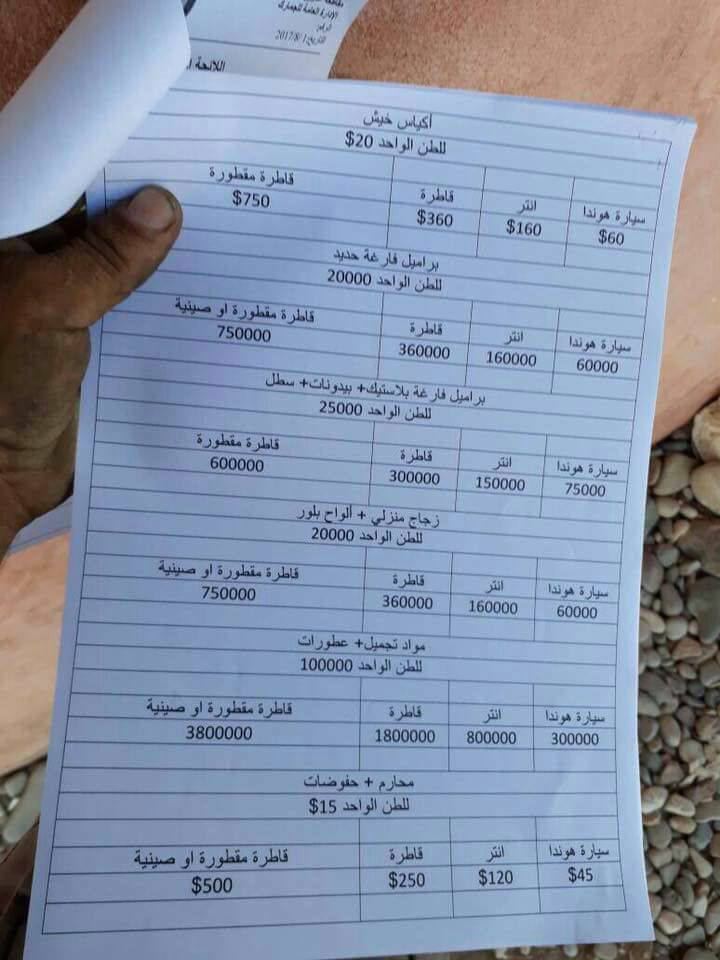 الإدارة العامة للجمارك
الرقم:
التاريخ: 2017/8/1
اللائحة
أكياس خيش
للطن الواحد 20$
سيارة هوندا انتر قاطرة قاطرة مقطورة
$60 $160 $360 $750
براميل فارغة حديد
للطن الواحد 20000
سيارة هوندا انتر قاطرة قاطرة مقطورة او صينية
60000 160000 360000 750000
براميل فارغة بلاستيك+ بيدونات+ سطل
للطن الواحد 25000
سيارة هوندا انتر قاطرة قاطرة مقطورة
75000 150000 300000 600000
زجاج منزلي + ألواح بلور
للطن الواحد 20000
سيارة هوندا انتر قاطرة قاطرة مقطورة او صينية
60000 160000 360000 750000
مواد تجميل+ عطورات
للطن الواحد 100000
سيارة هوندا انتر قاطرة قاطرة مقطورة او صينية
300000 800000 1800000 3800000
محارم + حفوضات
للطن الواحد 15$
سيارة هوندا انتر قاطرة قاطرة مقطورة او صينية
$45 $120 $250 $500